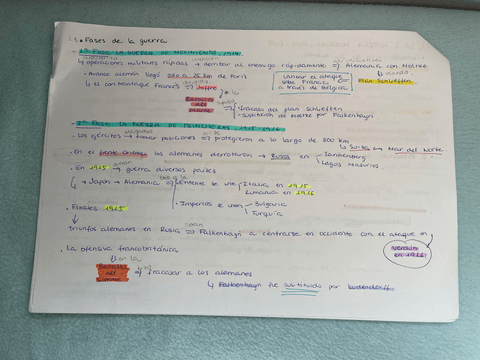 Fases de la guerra
1ª FASE LA GUERRA DE MOVIMIENTOS, 1914
operaciones militares rápidas → derrotar al enemigo rápidamente → Alemania con Moltke
Avance alemán llegó a 25 km de París
Lanzar el ataque sobre Francia a través de Bélgica
Plan Schlieffen
el contraataque Francés → Joffre
Batalla del Marne
Fracaso del plan Schlieffen
Sustitución de Moltke por Falkenhayn
2ª FASE LA GUERRA DE TRINCHERAS, 1915-1916
Los ejércitos → tomar posiciones → protegieron a lo largo de 800 km
La Suiza Mar del Norte
En el frente Oriental los alemanes derrotaron → Rusia en Tannenberg
Lagos Masurios
En 1915 → guerra diversos países
Japón → Alemania → Entente se une Italia en 1915
Rumanía en 1916
Imperios se unen Bulgaria
Turquía
Finales 1915
triunfos alemanes en Rusia → Falkenhayn a centrarse en occidente con el ataque en
Verdún en 1916
La ofensiva francobritánica
en la
Batalla del Somme
fracasar a los alemanes
Falkenhayn fue sustituido por